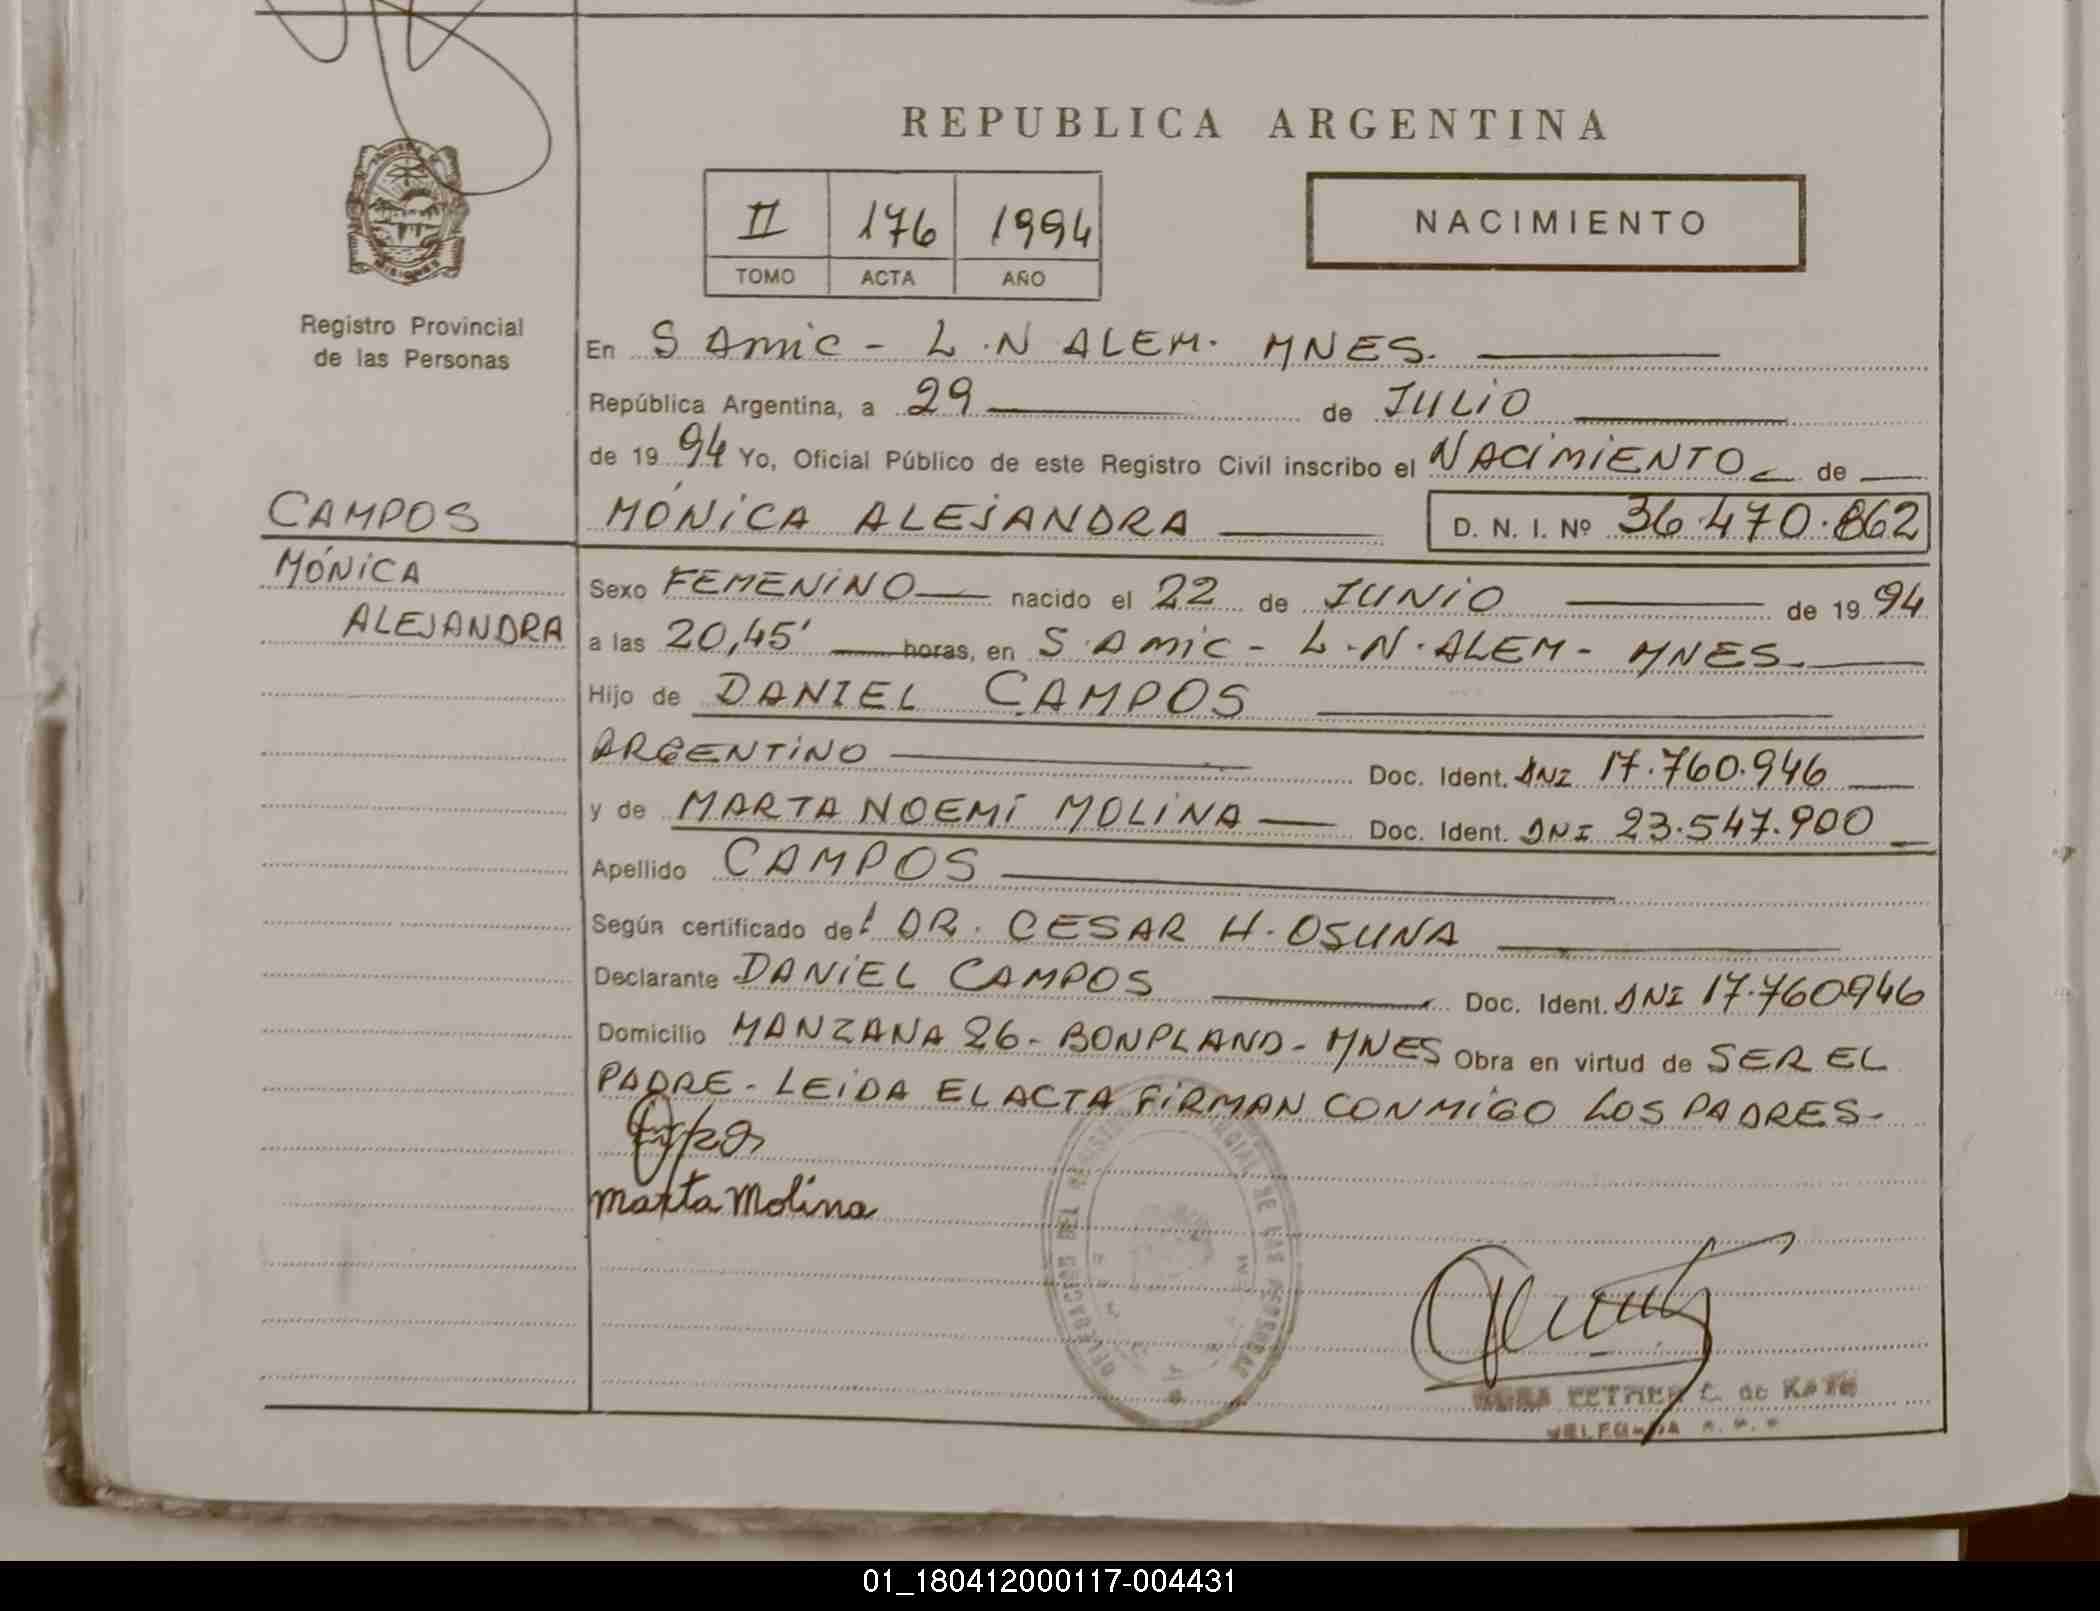 REPUBLICA ARGENTINA
II 176 1994
TOMO ACTA AÑO
NACIMIENTO
MISIONES
Registro Provincial
de las Personas
En S Amic - L.N ALEM. MNES.
República Argentina, a 29 de JULIO
de 1994 Yo, Oficial Público de este Registro Civil inscribo el NACIMIENTO de
CAMPOS
MÓNICA ALEJANDRA D. N. I. Nº 36.470.862
MÓNICA
ALEJANDRA
Sexo FEMENINO nacido el 22 de JUNIO de 1994
a las 20,45' horas, en S. Amic - L.N.ALEM - MNES.
Hijo de DANIEL CAMPOS
ARGENTINO Doc. Ident. DNI 17.760.946
y de MARTA NOEMÍ MOLINA Doc. Ident. DNI 23.547.900
Apellido CAMPOS
Según certificado del DR. CESAR H. OSUNA
Declarante DANIEL CAMPOS Doc. Ident. DNI 17.760946
Domicilio MANZANA 26 - BONPLAND - MNES Obra en virtud de SER EL
PADRE - LEIDA EL ACTA FIRMAN CONMIGO LOS PADRES -
Marta Molina
DEL REGISTRO DE LAS PERSONAS
DELEGADA
01_180412000117-004431